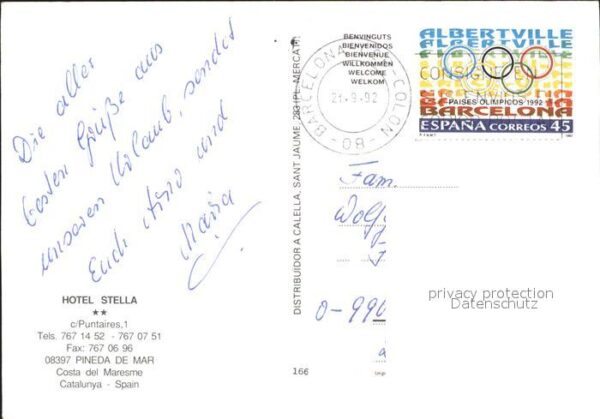 Die aller
besten Grüße aus
unserem Urlaub, sendet
Euch Arno und
Maria
HOTEL STELLA
★★
c/Puntaires,1
Tels. 767 14 52 - 767 07 51
Fax: 767 06 96
08397 PINEDA DE MAR
Costa del Maresme
Catalunya - Spain
DISTRIBUIDOR A CALELLA, SANT JAUME, 231(PL. MERCAT)
166
BENVINGUTS
BIENVENIDOS
BIENVENUE
WILLKOMMEN
WELCOME
WELKOM
BARCELONA
COLON
-08-
21-9-92
CONSIGNE
ENVIOS
ALBERTVILLE
ALBERTVILLE
PAISES OLIMPICOS 1992
BARCELONA
ESPAÑA CORREOS 45
Fam.
Wolf
0-990
privacy protection
Datenschutz